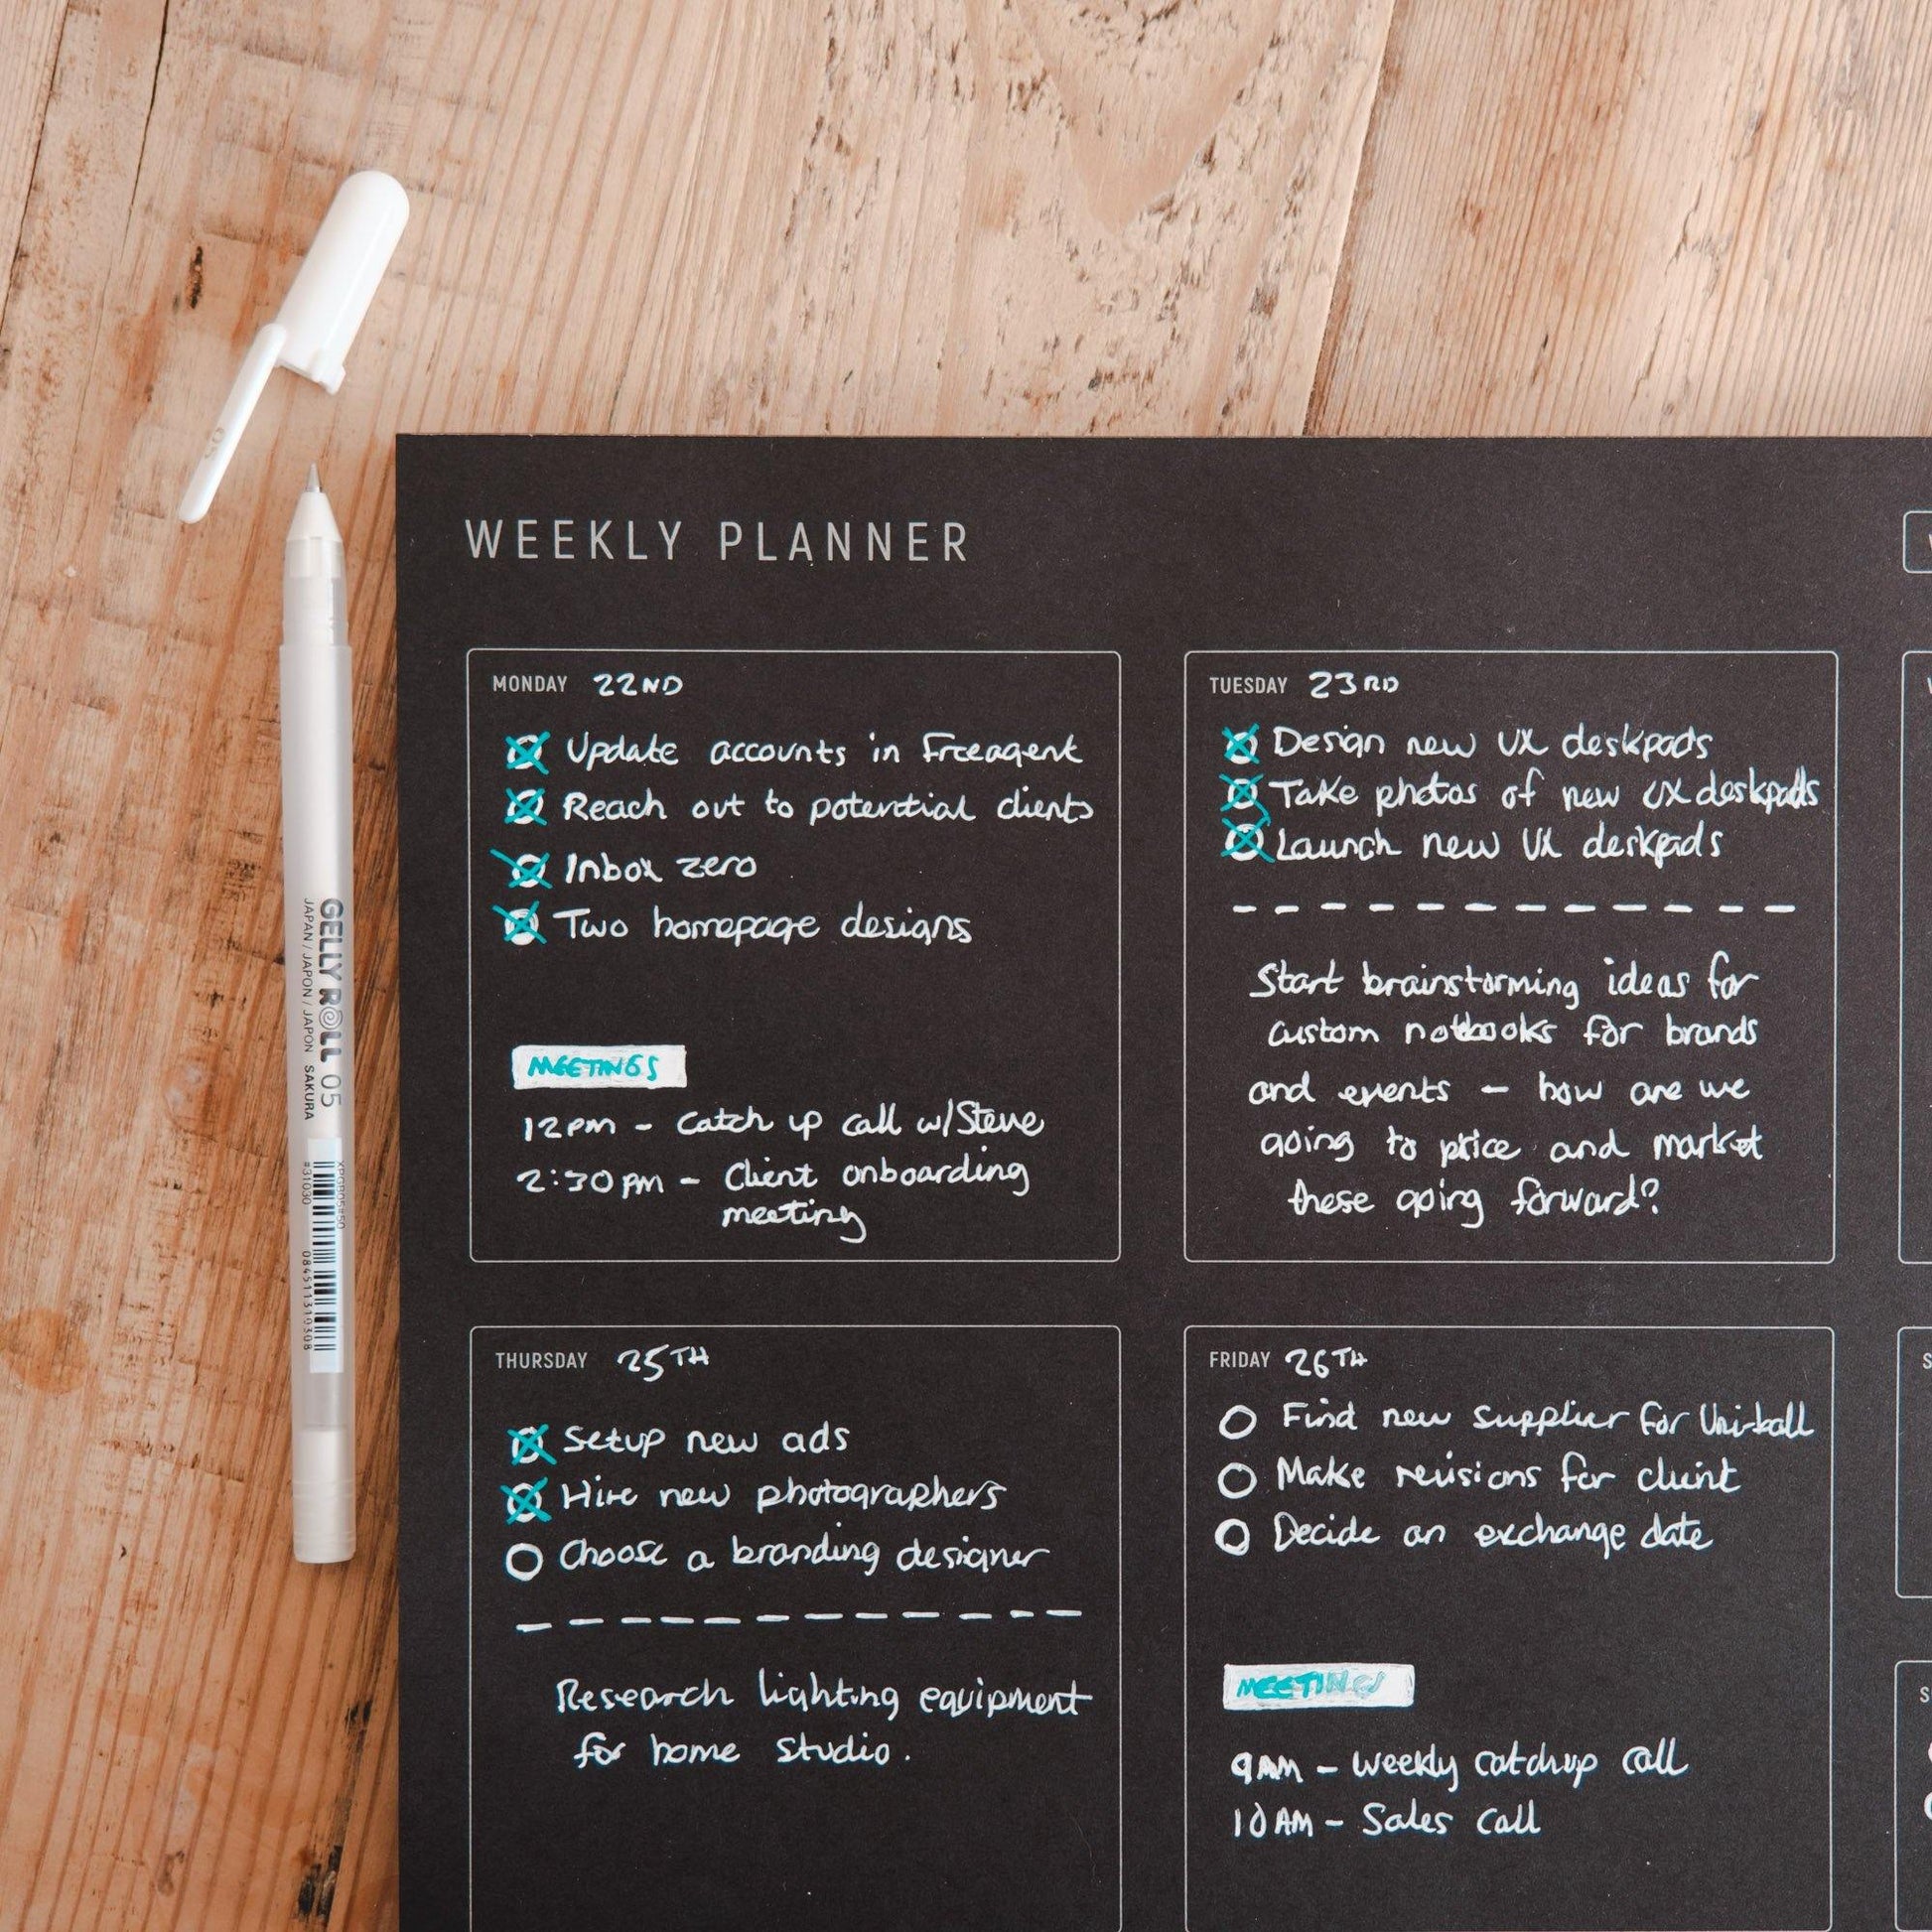 WEEKLY PLANNER
MONDAY 22ND
Update accounts in Freeagent
Reach out to potential clients
Inbox zero
Two homepage designs
MEETINGS
12pm - Catch up call w/Steve
2:30pm - Client onboarding
meeting
TUESDAY 23RD
Design new UX deskpads
Take photos of new UX deskpads
Launch new UX deskpads
Start brainstorming ideas for
custom notebooks for brands
and events - how are we
going to price and market
these going forward?
THURSDAY 25TH
Setup new ads
Hire new photographers
Choose a branding designer
Research lighting equipment
for home studio.
FRIDAY 26TH
Find new supplier for Uni-ball
Make revisions for client
Decide on exchange date
MEETINGS
9AM - Weekly catchup call
10AM - Sales call
GELLY ROLL 05
JAPAN / JAPON / JAPON SAKURA
XPGB05#50
#31030
084511319308
05